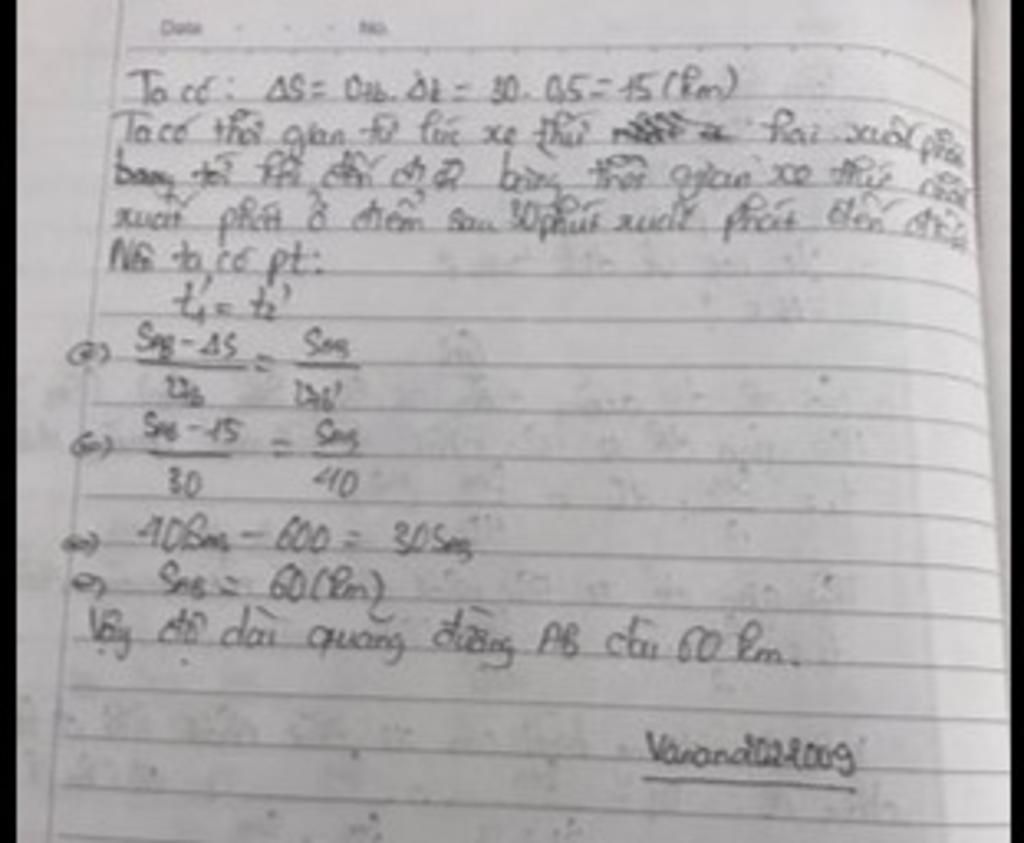 Date No.
Ta có: ΔS = vtb. Δt = 30. 0,5 = 15 (km)
Ta có thời gian từ lúc xe thứ hai xuất phát
thời gian xe thứ
xuất phát ở điểm sau 30 phút xuất phát đến
Nên ta có pt:
t1' = t2'
(=) SAB - ΔS / vtb = SAB / vtb'
(=) SAB - 15 / 30 = SAB / 40
(=) 40SAB - 600 = 30SAB
(=) SAB = 60 (km)
Vậy độ dài quãng đường AB dài 60 km.